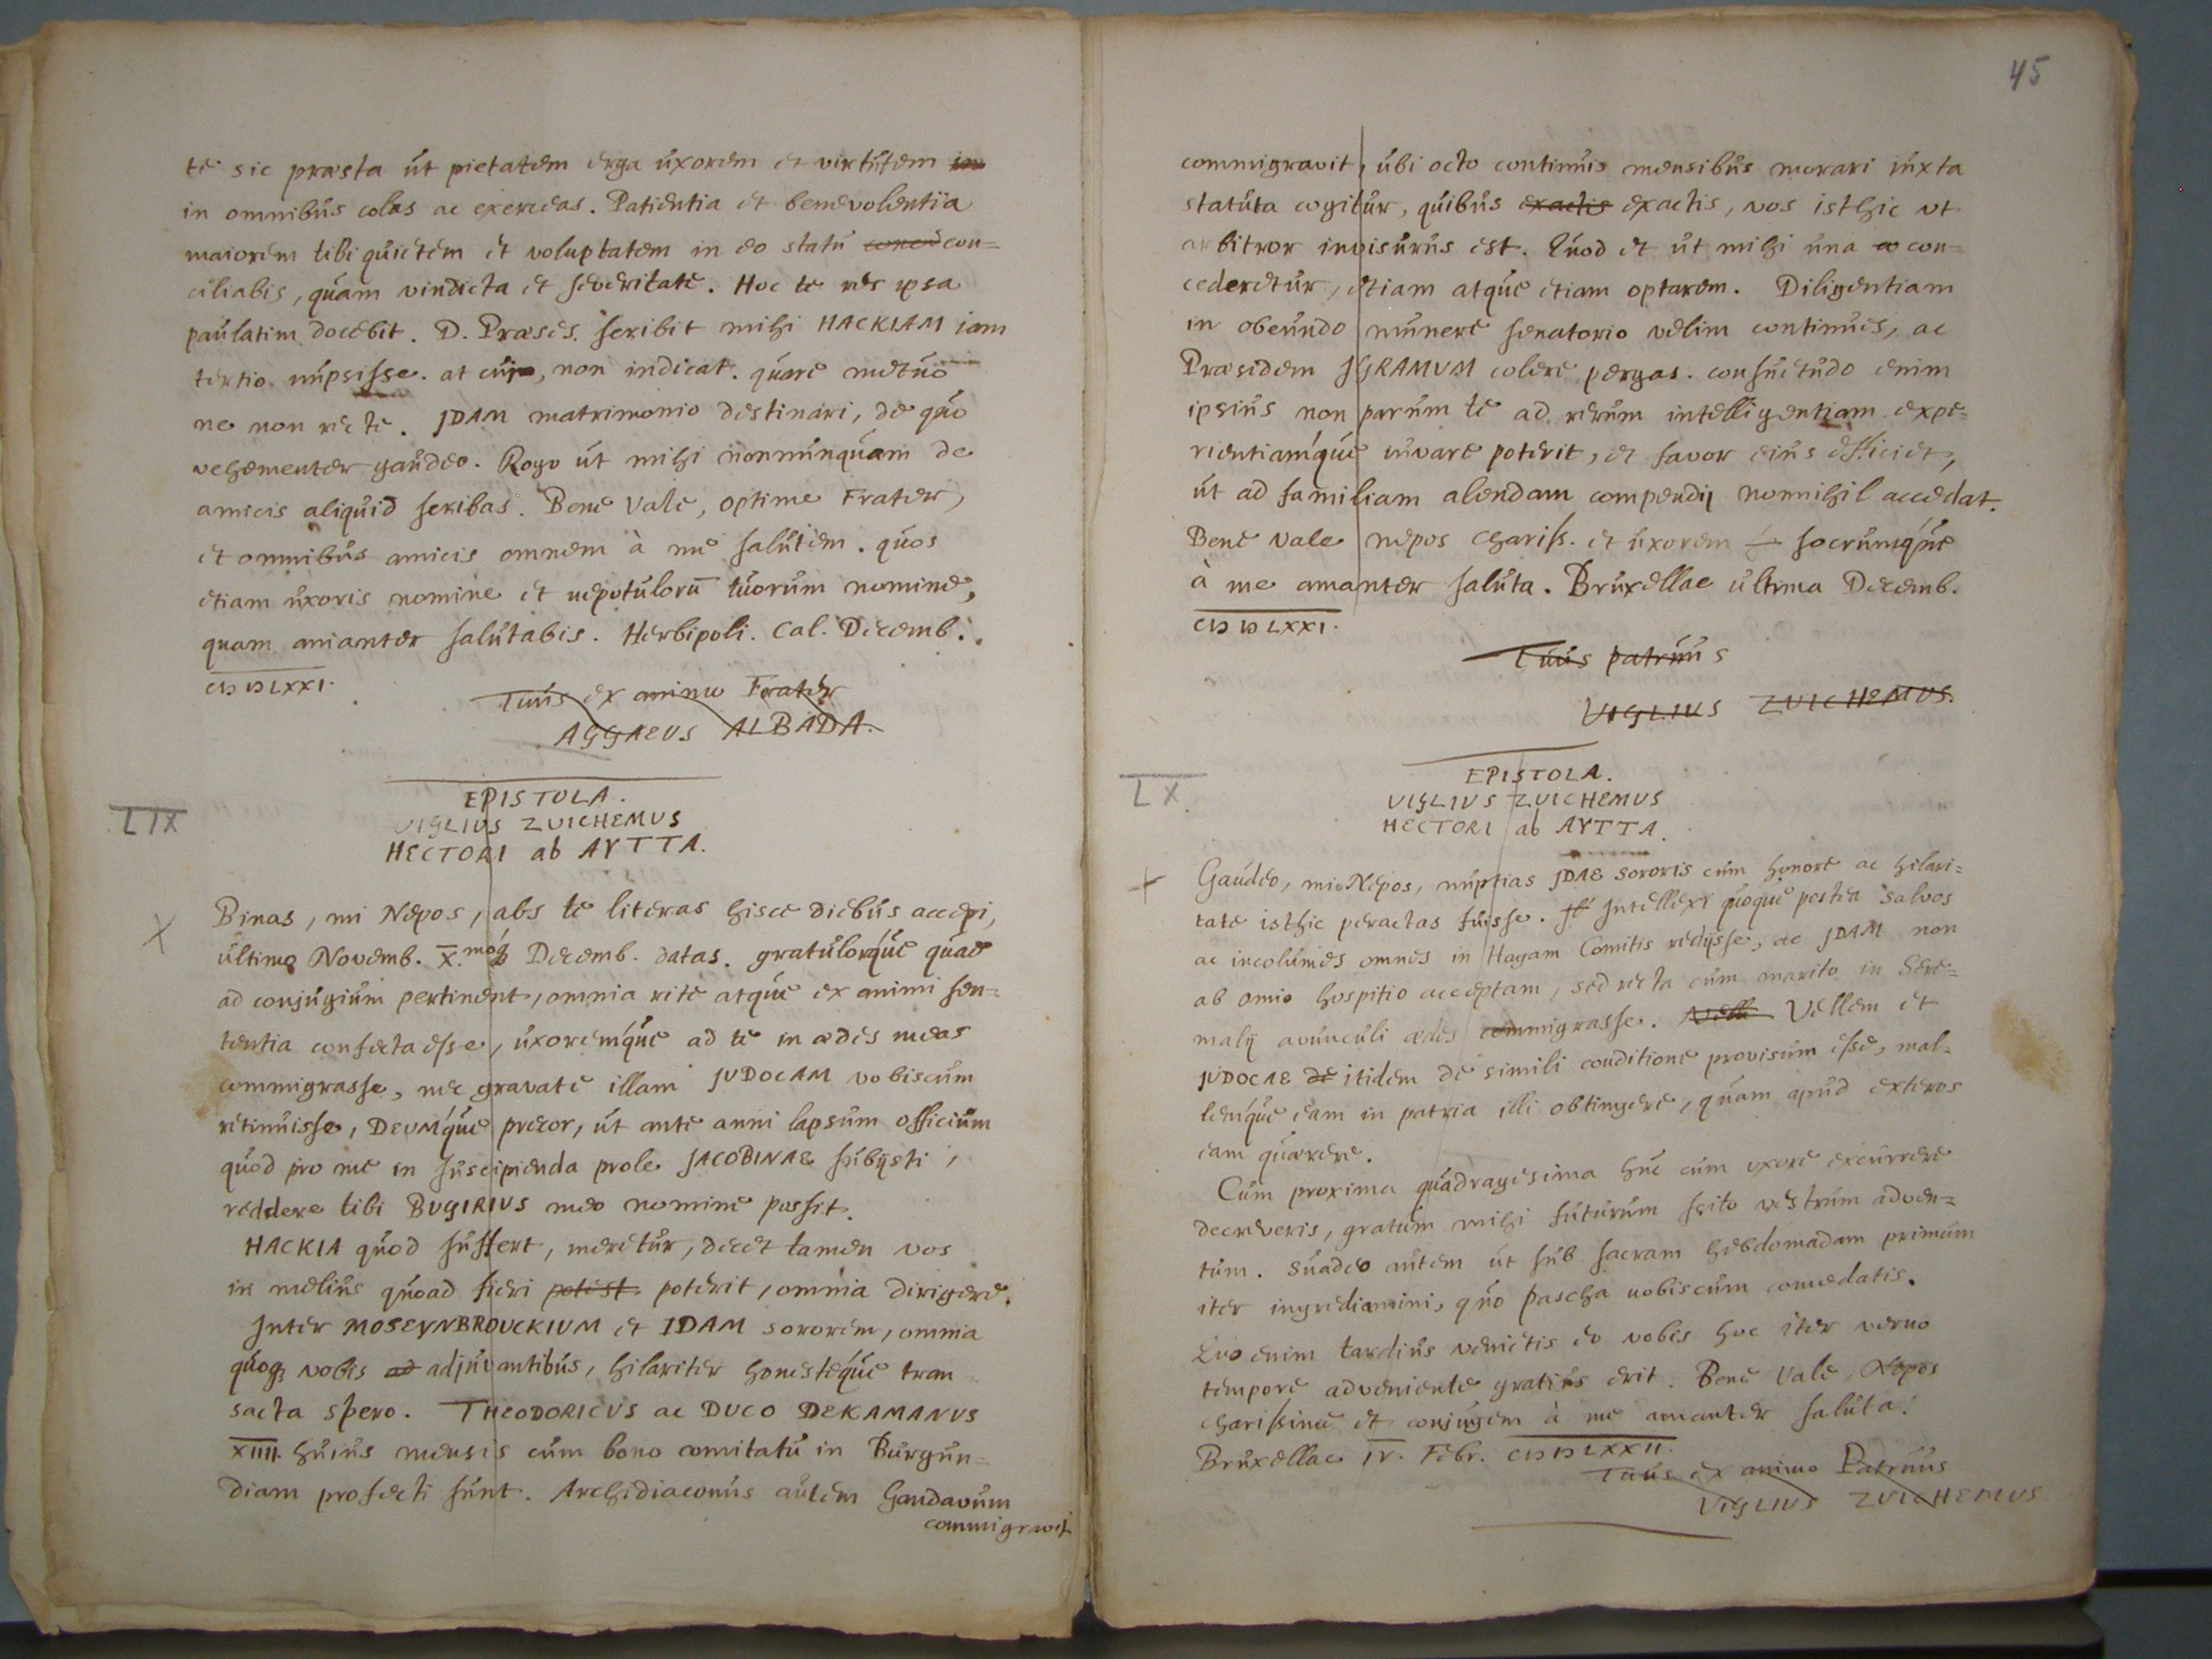 te sic præsta út pietatem erga úxorem et virtútem in
in omnibús colas ac exerceas. Patientia et benevolentiia
maiorem tibi quietem et voluptatem in eo statú concú con=
ciliabis, quam vindicta et severitate. Hoc te res ipsa
paúlatim docebit. D. Præses. scribit mihi HACKIAM iam
tertio núpsisse. at cúi, non indicat. quare metúo
ne non recte. JDAM matrimonio destinari, de quo
vehementer gaúdeo. Rogo út mihi nonnúnquam de
amicis aliquid scribas. Bene Vale, optime Frater,
et omnibús amicis omnem à me salútem. quos
etiam úxoris nomine et nepotúlorū túorum nomine,
quam amanter salútabis. Herbipoli. Cal. Decemb.
CIↃ IↃ LXXI.
Túús ex animo Frater
AGGAEUS ALBADA.
EPISTOLA.
LIX
VIGLIVS ZVICHEMVS
HECTORI ab AYTTA.
X
Binas, mi Nepos, abs te literas hisce diebús accepi,
último Novemb. X.moq́ Decemb. datas. gratúlorq́úe quae
ad conjúgiúm pertinent, omnia rite atqúe ex animi sen=
tentia confecta esse, úxoremq́úe ad te in ædes meas
commigrasse, nec gravate illam JUDOCAM vobiscúm
retinúisse, DEUMq́úe precor, út ante anni lapsúm officiúm
qúod pro me in súscipienda prole JACOBINAE súbijsti,
reddere tibi BUGIRIUS meo nomine possit.
HACKIA qúod súffert, meretúr, decet tamen vos
in meliús qúoad fieri potest poterit, omnia dirigere.
Inter MOSEYNBROUCKIUM et IDAM sororem, omnia
qúoq; vobis ad adjúvantibús, hilariter honesteq́úe tran
sacta spero. THEODORICUS ac DUCO DEKAMANUS
XIIII. húiús mensis cúm bono comitatú in Búrgún=
diam profecti súnt. Archidiaconús aútem Gandavúm
commigravit
45
commigravit, úbi octo continúis mensibús morari iúxta
statúta cogitúr, qúibús exactis exactis, vos isthic vt
arbitror invisúrús est. Qúod et út mihi úna co con=
cederetúr, etiam atqúe etiam optarem. Diligentiam
in obeúndo múnere senatorio velim continúes, ac
Præsidem IGRAMUM colere pergas. consúetúdo enim
ipsiús non parúm te ad rerúm intelligentiam expe=
rientiamq́úe iúvare poterit, et favor eiús efficiet,
út ad familiam alendam compendij nonnihil accedat.
Bene vale nepos chariss. et úxorem socrúmq́úe
à me amanter salúta. Brúxellae última Decemb.
CIↃ IↃ LXXI.
Túús patrúús
VIGLIUS ZUICHEMUS.
EPISTOLA.
LX.
VIGLIVS ZVICHEMUS
HECTORI ab AYTTA.
X
Gaúdeo, mi Nepos, núptias JDAE sororis cúm honore ac hilari=
tate isthic peractas fúisse. Intellexi qúoqúe postea salvos
ac incolúmes omnes in Hagam Comitis redijsse, ac JDAM non
ab omio hospitio acceptam, sed recta cúm marito in Sere=
malij avúncúli ædes commigrasse. Velle Vellem et
JUDOCAE de itidem de simili conditione provisúm esse, mal=
lemq́úe eam in patria illi obtingere, qúam apúd exteros
eam qúærere.
Cúm proxima qúadragesima húc cúm vxore excúrrere
decreveris, gratúm mihi fútúrúm scito vestrúm adven=
túm. Súadeo aútem út súb sacram hebdomadam primúm
iter ingrediamini, qúo pascha nobiscúm comedatis.
Qúo enim tardiús venietis eo vobis hoc iter verno
tempore adveniente gratiús erit. Bene Vale, Nepos
charissime et conjúgem à me amanter salúta.
Brúxellae IV. Febr. CIↃ IↃ LXXII.
Túús ex animo Patrúús
VIGLIUS ZUICHEMUS